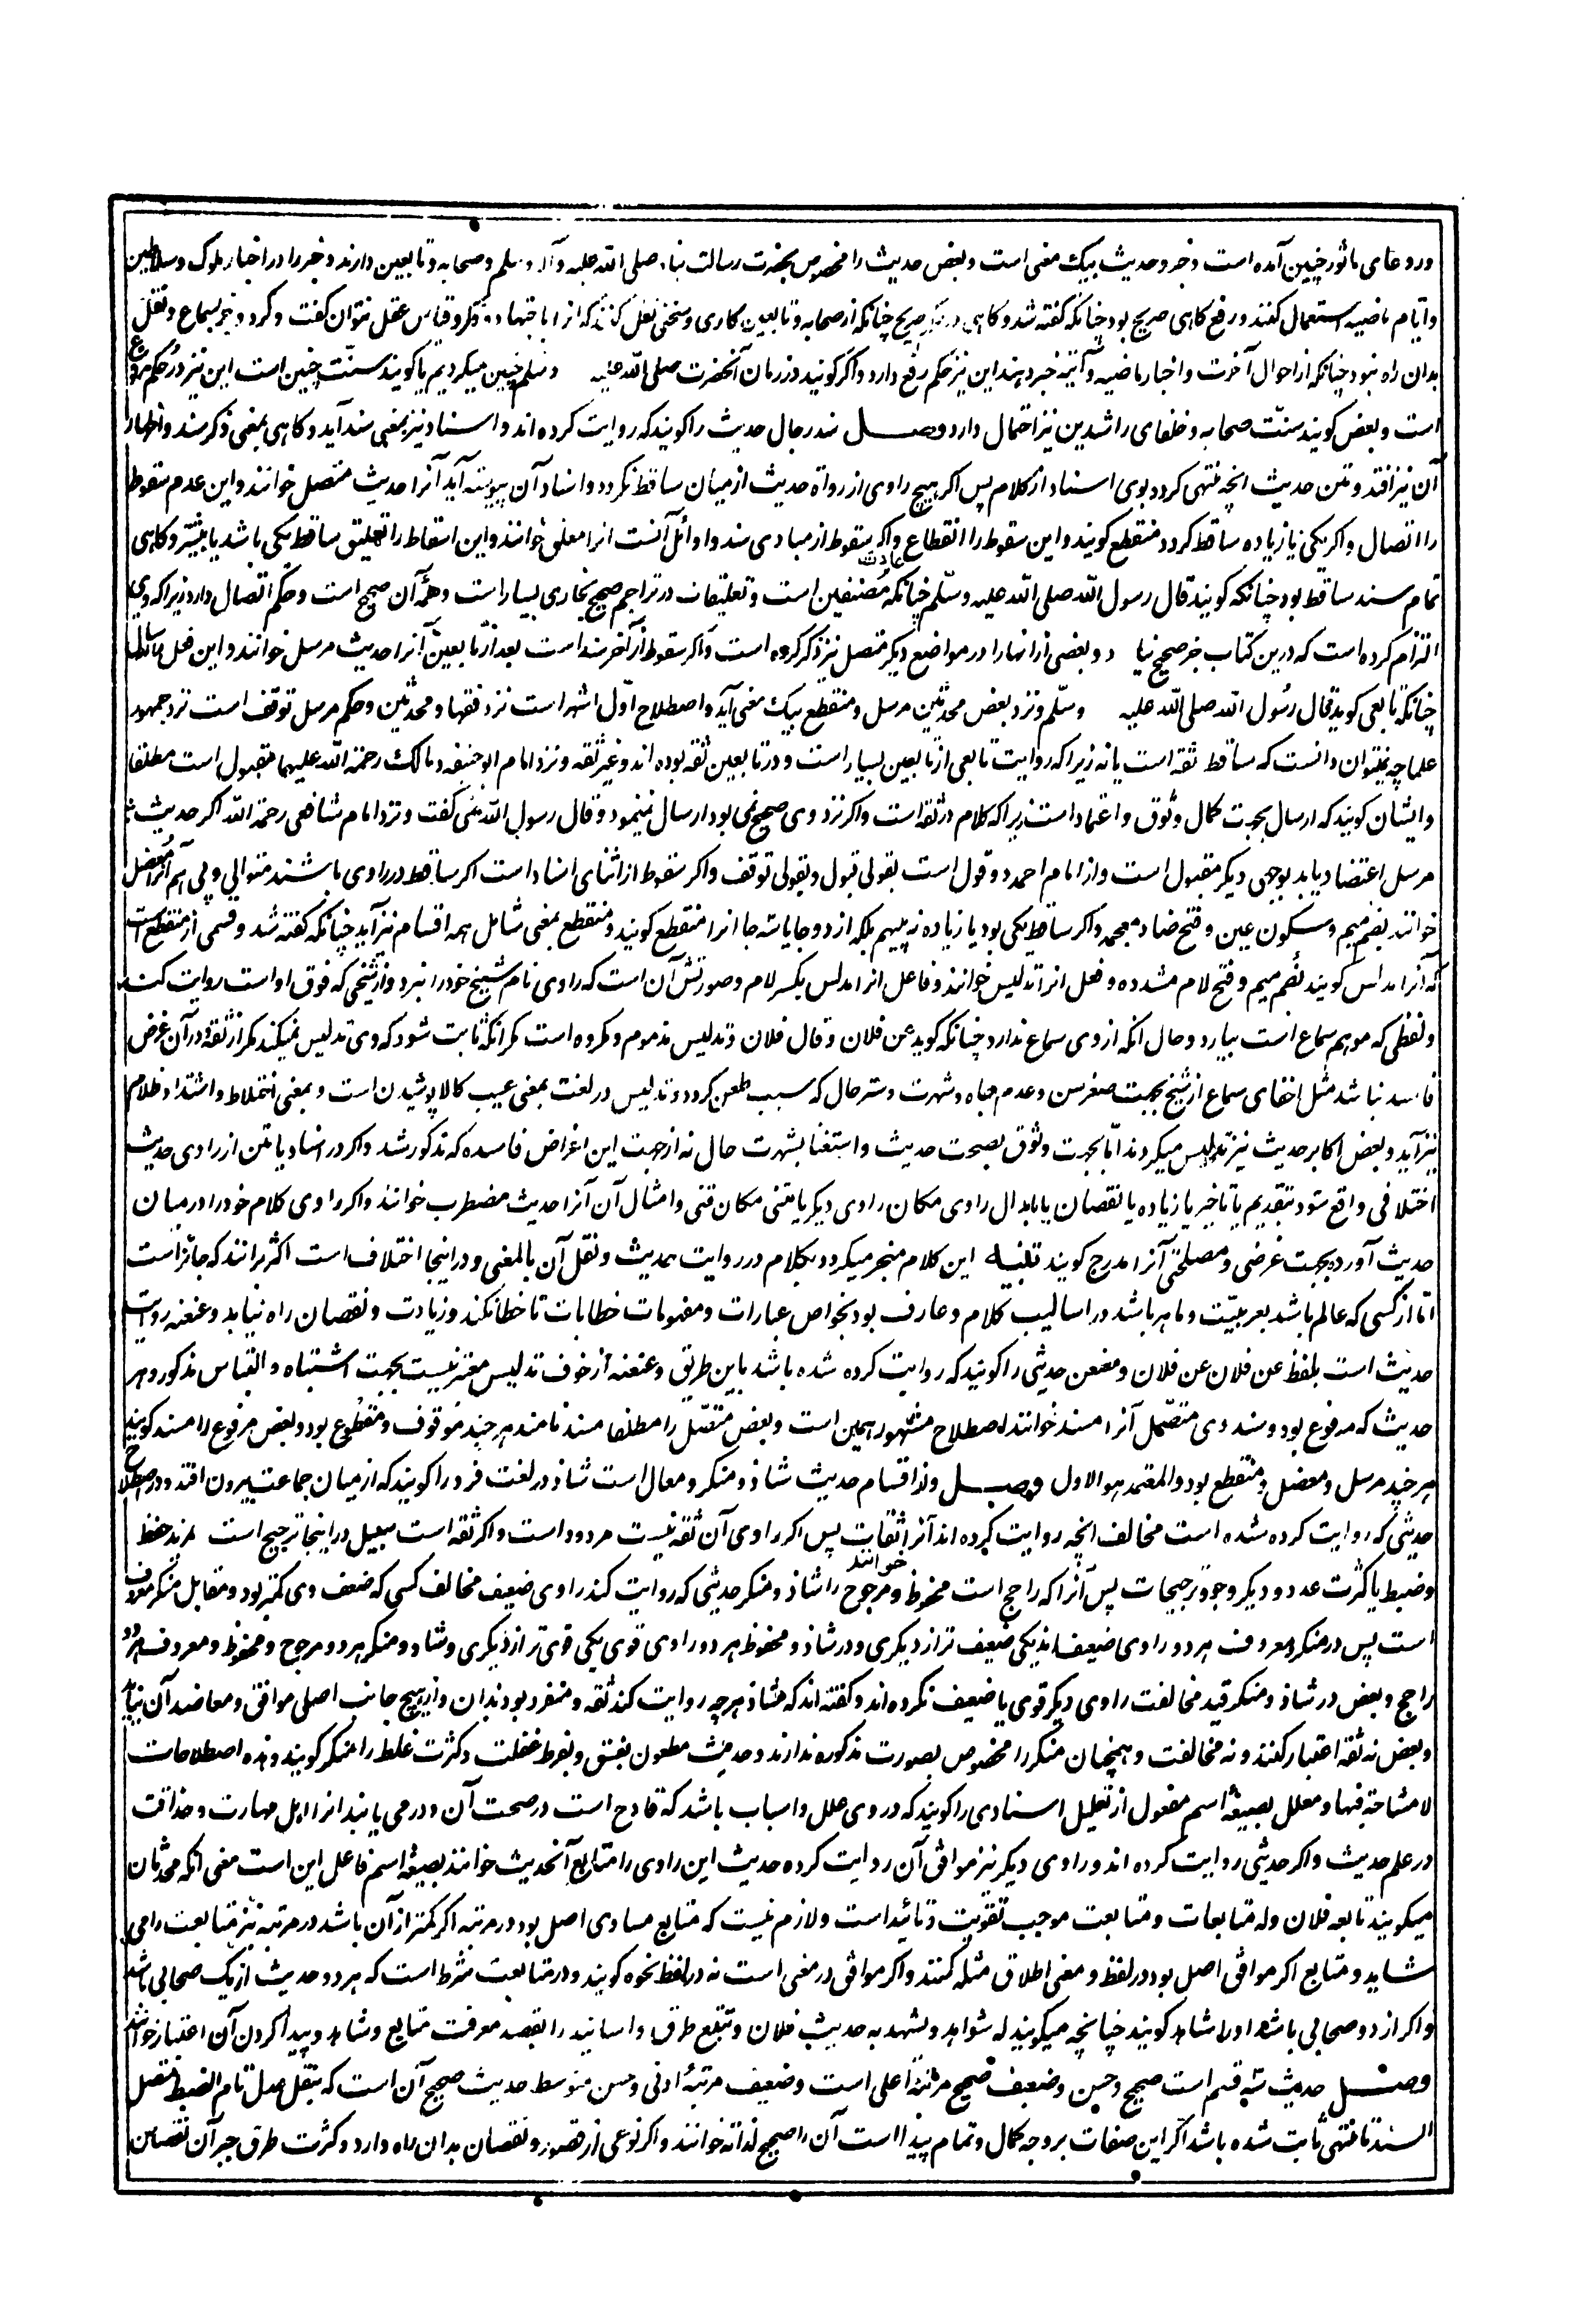 ودر دعای ماثور چنین آمده است وخبر وحدیث بیک معنی است وبعض حدیث را مخصوص بحضرت رسالت پناه صلی الله علیه وآله وسلم وصحابه وتابعین دارند وخبر را در اخبار ملوک وسلاطین
وایام ماضیه استعمال کنند ورفع کاهی صریح بود چنانکه کفته شد وکاهی در حکم صریح چنانکه از صحابه وتابعین کاری وسخنی نقل کنند که انرا باجتهاد وفکر وقیاس عقل نتوان کفت وکرد وجز بسماع ونقل
بدان راه نبود چنانکه از احوال آخرت واخبار ماضیه وآتیه خبر دهند این نیز حکم رفع دارد واکر کویند در زمان آنحضرت صلی الله علیه وسلم چنین میکردیم یا کویند سنّت چنین است این نیز در حکم مرفوع
است وبعض کویند سنّت صحابه وخلفای راشدین نیز احتمال دارد وصل سند رجال حدیث را کویند که روایت کرده اند واسناد نیز بمعنی سند آید وکاهی بمعنی ذکر سند واظهار
آن نیز افتد ومتن حدیث انچه منتهی کردد بوی اسناد از کلام پس اکر هیچ راوی از رواة حدیث از میان ساقط نکردد واسناد آن پیوسته آید آنرا حدیث متصل خوانند واین عدم سقوط
را اتصال واکر یکی یا زیاده ساقط کردد منقطع کویند واین سقوط را انقطاع واکر سقوط از مبادی سند واوائل آنست انرا معلق خوانند واین اسقاط را تعلیق ساقط یکی باشد یا بیشتر وکاهی
تمام سند ساقط بود چنانکه کویند قال رسول الله صلی الله علیه وسلّم چنانکه عادت مصنفین است وتعلیقات در تراجم صحیح بخاری بسیار است وهمه آن صحیح است وحکم اتصال دارد زیراکه وی
التزام کرده است که درین کتاب جز صحیح نیارد وبعضی ازانها را در مواضع دیکر متصل نیز ذکر کرده است واکر سقوط از آخر سند است بعد از تابعین آنرا حدیث مرسل خوانند واین فعل را ارسال
چنانکه تابعی کوید قال رسول الله صلی الله علیه وسلّم ونزد بعض محدثین مرسل ومنقطع بیک معنی آید واصطلاح اوّل اشهر است نزد فقها ومحدثین وحکم مرسل توقف است نزد جمهور
علما چه نتوان دانست که ساقط ثقه است یا نه زیراکه روایت تابعی از تابعین بسیار است ودر تابعین ثقه بوده اند وغیر ثقه ونزد امام ابو حنیفه ومالک رحمة الله علیهما مقبول است مطلقا
وایشان کویند که ارسال بجهت کمال وثوق واعتماد است زیراکه کلام در ثقه است واکر نزد وی صحیح نمی بود ارسال نمینمود وقال رسول الله نمی کفت ونزد امام شافعی رحمة الله اکر حدیث
مرسل اعتضاد یابد بوجهی دیکر مقبول است واز امام احمد دو قول است بقولی قبول وبقولی توقف واکر سقوط از اثنای اسناد است اکر ساقط دو راوی باشند متوالی وپی هم انرا معضل
خوانند بضم میم وسکون عین وفتح ضاد معجمه واکر ساقط یکی بود یا زیاده نه پیهم بلکه از دو جا یا سه جا انرا منقطع کویند ومنقطع بمعنی شامل همه اقسام نیز آید چنانکه کفته شد وقسمی از منقطع است
که آنرا مدلس کویند بضم میم وفتح لام مشدده وفعل انرا تدلیس خوانند وفاعل انرا مدلس بکسر لام وصورتش آن است که راوی نام شیخ خود را نبرد واز شیخی که فوق او است روایت کند
ولفظی که موهم سماع است بیارد وحال انکه از وی سماع ندارد چنانکه کوید عن فلان وقال فلان وتدلیس مذموم ومکروه است مکر آنکه ثابت شود که وی تدلیس نمیکند مکر از ثقه ودر آن غرض
فاسد نباشد مثل اخفای سماع از شیخ بجهت صغر سن وعدم جاه وشهرت وستر حال که سبب طعن کردد وتدلیس در لغت بمعنی عیب کالا پوشیدن است وبمعنی اختلاط واشتداد ظلام
نیز آید وبعض اکابر حدیث نیز تدلیس میکردند امّا بجهت وثوق بصحت حدیث واستغنا بشهرت حال نه از جهت این اغراض فاسده که مذکور شد واکر در اسناد یا متن از راوی حدیث
اختلافی واقع شود بتقدیم یا تاخیر یا زیاده یا نقصان یا بابدال راوی مکان راوی دیکر یا متنی مکان متنی وامثال آن آنرا حدیث مضطرب خوانند واکر راوی کلام خود را درمیان
حدیث آورده بجهت غرضی ومصلحتی آنرا مدرج کویند تنبیه این کلام منجر میکردد بکلام در روایت حدیث ونقل آن بالمعنی ودر اینجا اختلاف است اکثر برانند که جائز است
امّا از کسی که عالم باشد بعربیّت وماهر باشد در اسالیب کلام وعارف بود بخواص عبارات ومفهومات خطابات تا خطا نکند وزیادت ونقصان راه نیابد وعنعنه روایت
حدیث است بلفظ عن فلان عن فلان ومعنعن حدیثی را کویند که روایت کرده شده باشد باین طریق وعنعنه از خوف تدلیس معتبر نیست بجهت اشتباه والتباس مذکور وهر
حدیث که مرفوع بود وسند وی متصل آنرا مسند خوانند اصطلاح مشهور همین است وبعض متصل را مطلقا مسند نامند هر چند موقوف ومقطوع بود وبعض مرفوع را مسند کویند
هر چند مرسل ومعضل ومنقطع بود والمعتمد هو الاول وصل واز اقسام حدیث شاذ ومنکر ومعلل است شاذ در لغت فرد را کویند که از میان جماعت بیرون افتد ودر اصطلاح
حدیثی که روایت کرده شده است مخالف انچه روایت کرده اند آنرا ثقات پس اکر راوی آن ثقه نیست مردود است واکر ثقه است سبیل در اینجا ترجیح است بمزید حفظ
وضبط یا کثرت عدد ودیکر وجوه ترجیحات پس آنرا که راجح است محفوظ خوانند ومرجوح را شاذ ومنکر حدیثی که روایت کند راوی ضعیف مخالف کسی که ضعف وی کمتر بود ومقابل منکر معروف
است پس در منکر ومعروف هر دو راوی ضعیف اند یکی ضعیف تر از دیکری ودر شاذ ومحفوظ هر دو راوی قوی یکی قوی تر از دیکری وشاذ ومنکر هر دو مرجوح ومحفوظ ومعروف هر دو
راجح وبعض در شاذ ومنکر قید مخالفت راوی دیکر قوی یا ضعیف نکرده اند وکفته اند که شاذ هرچه روایت کند ثقه ومنفرد بود بدان واز هیچ جانب اصلی موافق ومعاضد آن نیابد
وبعض نه ثقه اعتبار کنند ونه مخالفت وهمچنان منکر را مخصوص بصورت مذکوره ندارند وحدیث مطعون بفسق وبفرط غفلت وکثرت غلط را منکر کویند وهذه اصطلاحات
لا مشاحة فیها ومعلل بصیغه اسم مفعول از تعلیل اسنادی را کویند که در وی علل واسباب باشد که قادح است در صحت آن ودرمی یابند انرا اهل مهارت وحذاقت
در علم حدیث واکر حدیثی روایت کرده اند وراوی دیکر نیز موافق آن روایت کرده حدیث این راوی را متابع آنحدیث خوانند بصیغه اسم فاعل این است معنی انکه محدثان
میکویند تابعه فلان وله متابعات ومتابعت موجب تقویت وتائید است ولازم نیست که متابع مساوی اصل بود در مرتبه اکر کمتر از آن باشد در مرتبه نیز متابعت را می
شاید ومتابع اکر موافق اصل بود در لفظ ومعنی اطلاق مثله کنند واکر موافق در معنی است نه در لفظ نحوه کویند ودر متابعت شرط است که هر دو حدیث از یک صحابی باشد
واکر از دو صحابی باشد اورا شاهد کویند چنانچه میکویند له شواهد ویشهد به حدیث فلان وتتبع طرق واسانید را بقصد معرفت متابع وشاهد وپیدا کردن آن اعتبار خوانند
وصل حدیث سه قسم است صحیح وحسن وضعیف صحیح مرتبه اعلی است وضعیف مرتبۀ ادنی وحسن متوسط حدیث صحیح آن است که بنقل عدل تام الضبط متصل
السند تا منتهی ثابت شده باشد اکر این صفات بر وجه کمال وتمام پیدا است آن را صحیح لذاته خوانند واکر نوعی از قصور ونقصان بدان راه دارد وکثرت طرق جبر آن نقصان